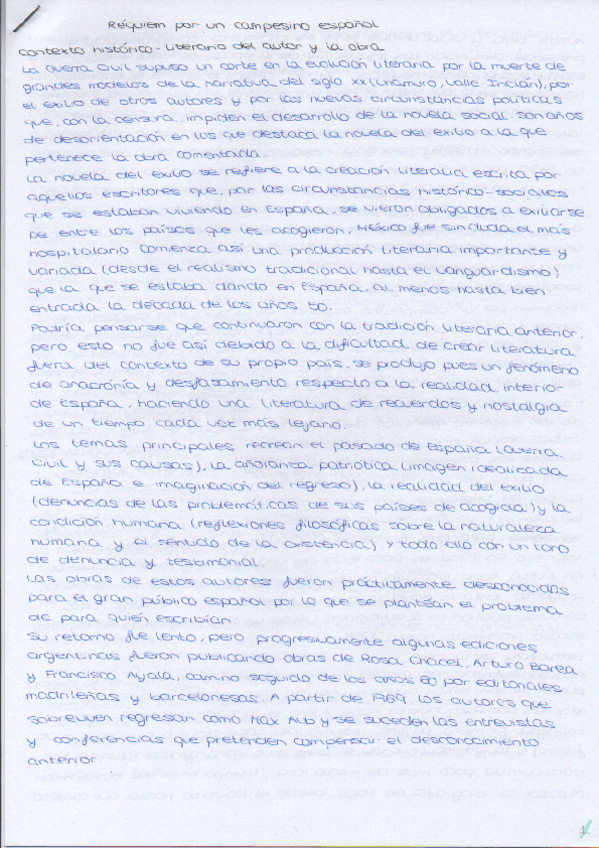 Réquiem por un campesino español
Contexto histórico-literario del autor y la obra
La Guerra Civil supuso un corte en la evolución literaria por la muerte de
grandes modelos de la narrativa del siglo XX (Unamuno, Valle Inclán), por
el exilio de otros autores y por las nuevas circunstancias políticas
que, con la censura, impiden el desarrollo de la novela social. Son años
de desorientación en los que destaca la novela del exilio a la que
pertenece la obra comentada.
La novela del exilio se refiere a la creación literaria escrita por
aquellos escritores que, por las circunstancias histórico-sociales
que se estaban viviendo en España, se vieron obligados a exiliarse
De entre los países que les acogieron, México fue sin duda el más
hospitalario comienza así una producción literaria importante y
variada (desde el realismo tradicional hasta el vanguardismo)
que la que se estaba dando en España, al menos hasta bien
entrada la década de los años 50.
Podría pensarse que continuaron con la tradición literaria anterior,
pero esto no fue así debido a la dificultad de crear literatura
fuera del contexto de su propio país. Se produjo pues un fenómeno
de anacronía y desfasamiento respecto a la realidad interior
de España, haciendo una literatura de recuerdos y nostalgia
de un tiempo cada vez más lejano.
Los temas principales recrean el pasado de España (Guerra
Civil y sus causas), la añoranza patriótica (imagen idealizada
de España e imaginación del regreso), la realidad del exilio
(denuncias de las problemáticas de sus países de acogida) y la
condición humana (reflexiones filosóficas sobre la naturaleza
humana y el sentido de la existencia) y todo ello con un toro
de denuncia y testimonial.
Las obras de estos autores fueron prácticamente desconocidas
para el gran público español por lo que se plantean el problema
de para quién escribían.
Su retorno fue lento, pero progresivamente algunas ediciones
argentinas fueron publicando obras de Rosa Chacel, Arturo Barea
y Francisco Ayala, camino seguido de los años 60 por editoriales
madrileñas y barcelonesas. A partir de 1969, los autores que
sobreviven regresan como Max Aub y se suceden las entrevistas
y conferencias que pretenden compensar el desconocimiento
anterior.
1